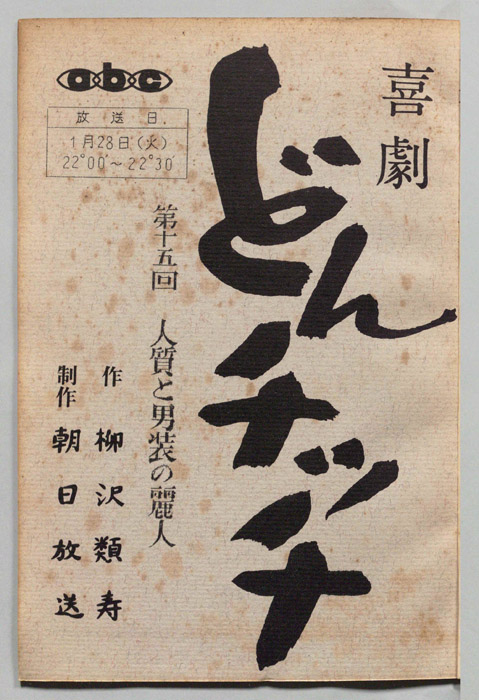 喜劇
どんチッチ
abc
放送日.
1月28日(火)
22°00′～22°30′
第十五回 人質と男装の麗人
作 柳沢類寿
制作 朝日放送